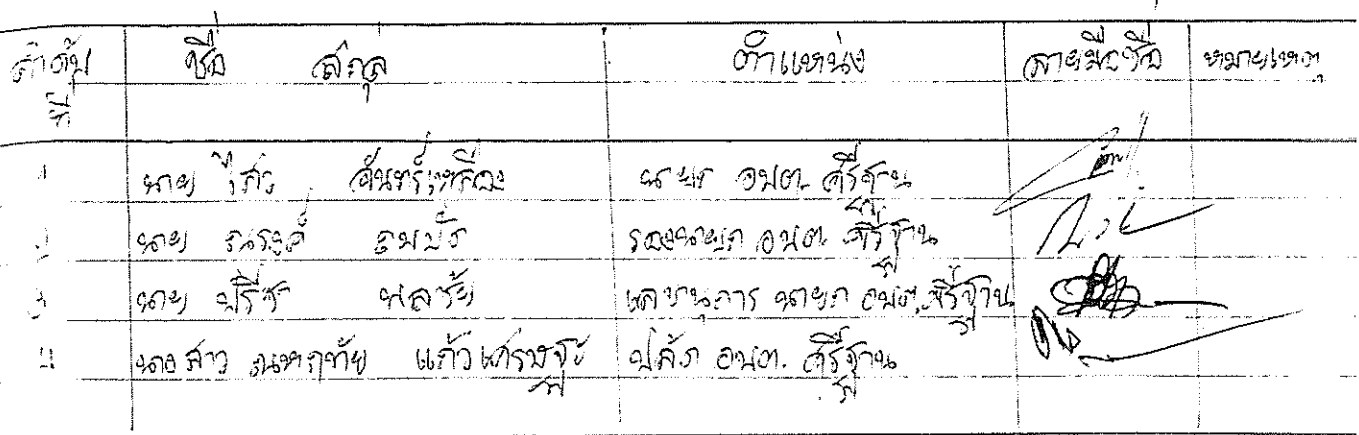 ลำดับ ชื่อ สกุล ตำแหน่ง ลายมือชื่อ หมายเหตุ
ที่
1 นาย ไสว จันทร์เหลือง นายก อบต. ศรีฐาน
2 นาย ณรงค์ สมบัติ รองนายก อบต. ศรีฐาน
3 นาย ปรีชา พลชัย เลขานุการ นายก อบต. ศรีฐาน
4 นางสาว ณหฤทัย แก้วเศรษฐะ ปลัด อบต. ศรีฐาน